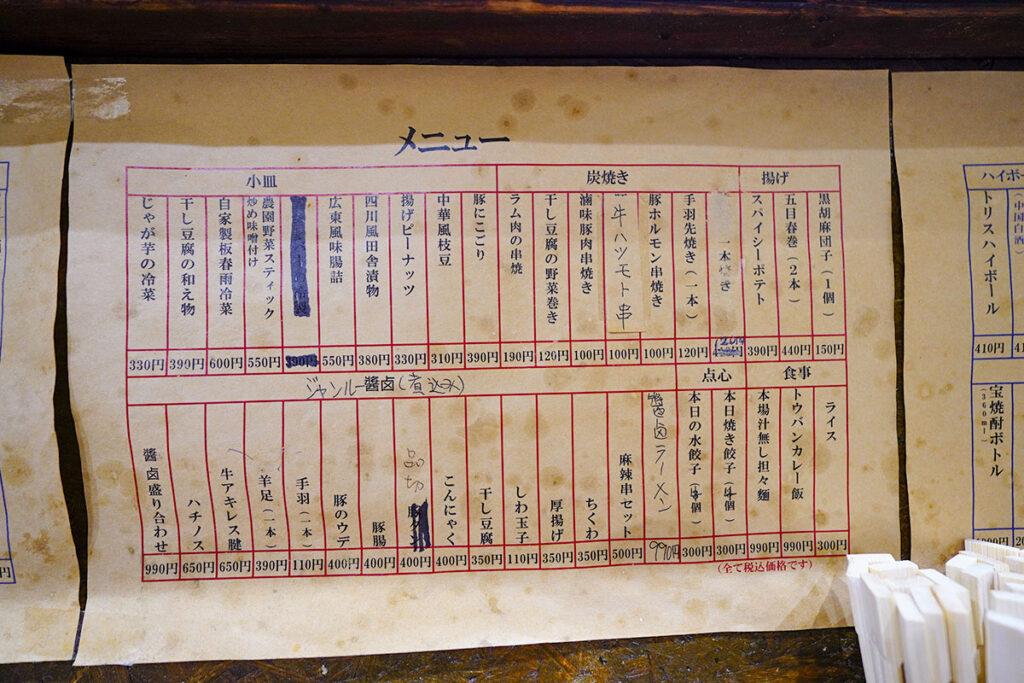 メニュー
揚げ
黒胡麻団子(1個) 150円
五目春巻(2本) 440円
スパイシーポテト 390円
炭焼き
一本焼き
手羽先焼き(一本) 120円
豚ホルモン串焼き 100円
牛ハツモト串 100円
滷味豚肉串焼き 100円
干し豆腐の野菜巻き 120円
ラム肉の串焼 190円
小皿
豚にこごり 390円
中華風枝豆 310円
揚げピーナッツ 330円
四川風田舎漬物 380円
広東風味腸詰 550円
390円
農園野菜スティック 炒め味噌付け 550円
自家製板春雨冷菜 600円
干し豆腐の和え物 390円
じゃが芋の冷菜 330円
食事
ライス 300円
トウバンカレー飯 990円
本場汁無し担々麺 990円
点心
本日焼き餃子(4個) 300円
本日の水餃子(4個) 300円
ジャンルー醬卤(煮込み)
醬卤ラーメン 990円
麻辣串セット 500円
ちくわ 350円
厚揚げ 350円
しわ玉子 110円
干し豆腐 350円
こんにゃく 400円
品切 豚タン 400円
豚腸 400円
豚のウデ 400円
手羽(一本) 110円
羊足(一本) 390円
牛アキレス腱 650円
ハチノス 650円
醬卤盛り合わせ 990円
(全て税込価格です)
ハイボー
(中国白酒)
トリスハイボール
410円
宝焼酎ボトル
(360ml)